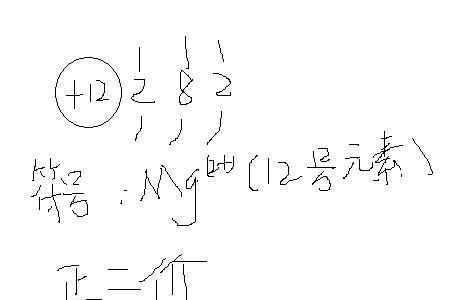 +12 2 8 2
符号:Mg(12号元素)
正二价